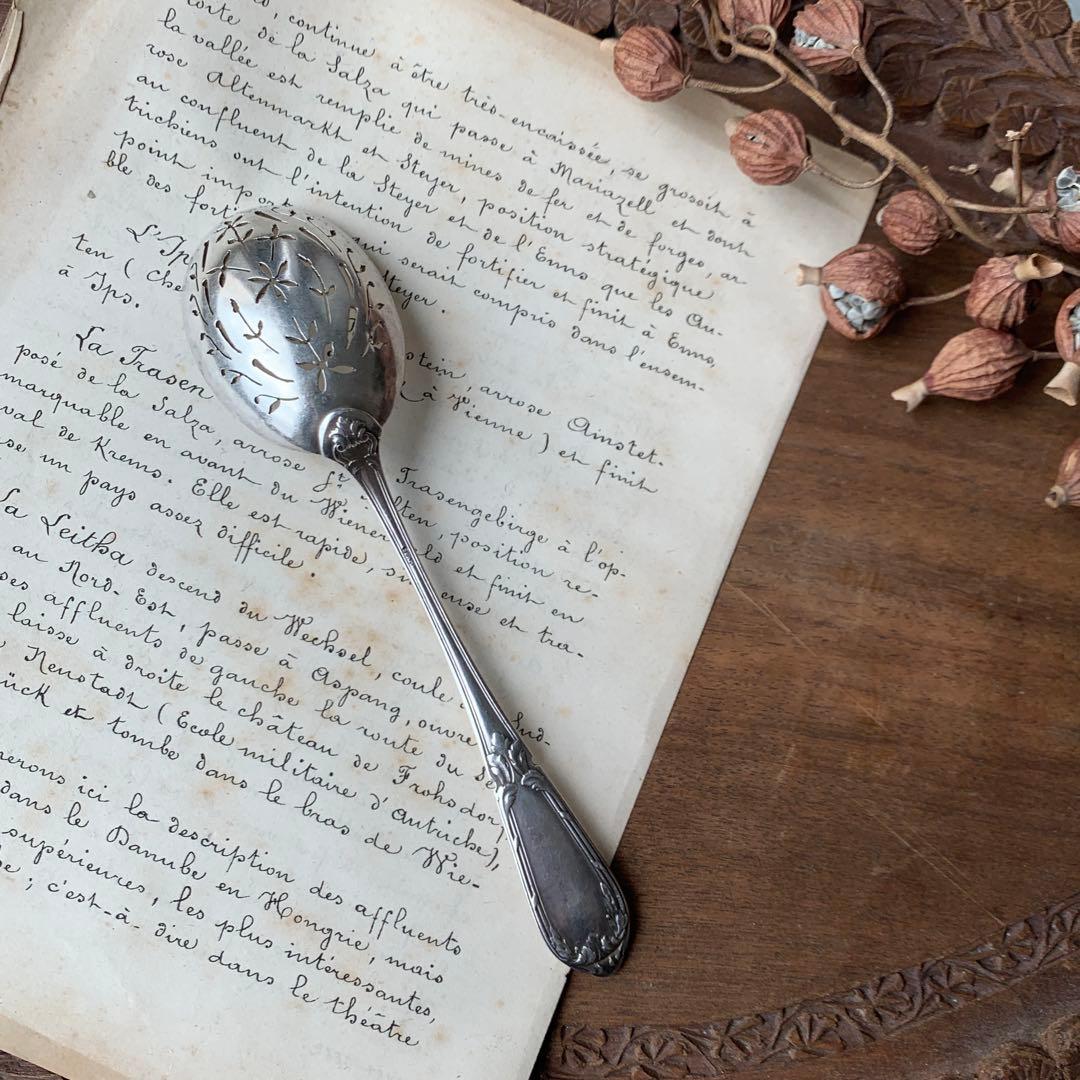 continue à être très-encaissée, se grossit à
de la Salza qui passe à Mariazell et dont
la vallée est remplie de mines de fer et de forges, ar
rose Altenmarkt et Steyer, position stratégique
au confluent de la Steyer et de l'Enns que les Au-
trichiens ont l'intention de fortifier et finit à Enns,
point qui serait compris dans l'ensem-
ble des Steyer.
L'Ips arrose Amstet.
ten ( à Vienne ) et finit
à Ips.
La Trasen Trasengebirge à l'op-
posé de la Salza, arrose St position re-
marquable en avant du et finit en
val de Krems. Elle est rapide, et tra-
se un pays assez difficile.
La Leitha descend du Wechsel, coule Sud-
au Nord-Est, passe à Aspang, ouvre
ses affluents de gauche la route du
laisse à droite le château de Frohsdorf,
Neustadt (Ecole militaire d'Autriche),
et tombe dans le bras de Wie-
ici la description des affluents
dans le Danube en Hongrie, mais
supérieures, les plus intéressantes,
; c'est-à-dire dans le théâtre